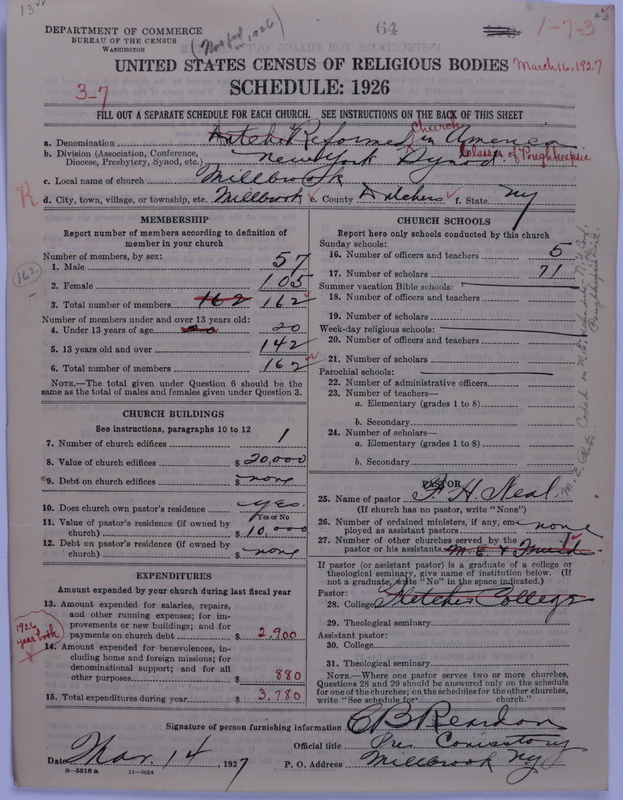 DEPARTMENT OF COMMERCE
BUREAU OF THE CENSUS
WASHINGTON
64
1-7-3
UNITED STATES CENSUS OF RELIGIOUS BODIES
March 16, 1927
3-7
SCHEDULE: 1926
FILL OUT A SEPARATE SCHEDULE FOR EACH CHURCH. SEE INSTRUCTIONS ON THE BACK OF THIS SHEET
a. Denomination Dutch Reformed Church in America
b. Division (Association, Conference, Diocese, Presbytery, Synod, etc.) New York Synod Classis of Poughkeepsie
c. Local name of church Millbrook
d. City, town, village, or township, etc. Millbrook e. County Dutchess f. State NY
R
MEMBERSHIP
Report number of members according to definition of
member in your church
Number of members, by sex:
1. Male 57
2. Female 105
162
3. Total number of members 162 162
Number of members under and over 13 years old:
4. Under 13 years of age 20 20
5. 13 years old and over 142
6. Total number of members 162
NOTE.—The total given under Question 6 should be the
same as the total of males and females given under Question 3.
CHURCH BUILDINGS
See instructions, paragraphs 10 to 12
7. Number of church edifices 1
8. Value of church edifices $ 20,000
9. Debt on church edifices $ none
10. Does church own pastor's residence yes
Yes or No
11. Value of pastor's residence (if owned by
church) $ 10,000
12. Debt on pastor's residence (if owned by
church) $ none
EXPENDITURES
Amount expended by your church during last fiscal year
1926
year book
13. Amount expended for salaries, repairs,
and other running expenses; for im-
provements or new buildings; and for
payments on church debt $ 2,900
14. Amount expended for benevolences, in-
cluding home and foreign missions; for
denominational support; and for all
other purposes $ 880
15. Total expenditures during year $ 3,780
CHURCH SCHOOLS
Report here only schools conducted by this church
Sunday schools:
16. Number of officers and teachers 5
17. Number of scholars 71
Summer vacation Bible schools:
18. Number of officers and teachers
19. Number of scholars
Week-day religious schools:
20. Number of officers and teachers
21. Number of scholars
Parochial schools:
22. Number of administrative officers
23. Number of teachers—
a. Elementary (grades 1 to 8)
b. Secondary
24. Number of scholars—
a. Elementary (grades 1 to 8)
b. Secondary
PASTOR
25. Name of pastor F. H. Neal
(If church has no pastor, write "None")
26. Number of ordained ministers, if any, em-
ployed as assistant pastors none
27. Number of other churches served by the
pastor or his assistants 1 M. E. &
If pastor (or assistant pastor) is a graduate of a college or
theological seminary, give name of institution below. (If
not a graduate, write "No" in the space indicated.)
Pastor:
28. College Fletcher College
29. Theological seminary
Assistant pastor:
30. College
31. Theological seminary
NOTE.—Where one pastor serves two or more churches,
Questions 28 and 29 should be answered only on the schedule
for one of the churches; on the schedules for the other churches,
write "See schedule for church."
Signature of person furnishing information C B Reardon
Official title Pres Consistory
Date Mar. 14, 1927
P. O. Address Millbrook NY
8-5518a 11-9054